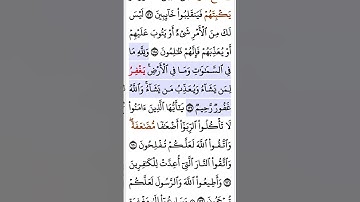 يَكْبِتَهُمْ فَيَنقَلِبُوا۟ خَآئِبِينَ ١٢٧ لَيْسَ
لَكَ مِنَ ٱلْأَمْرِ شَىْءٌ أَوْ يَتُوبَ عَلَيْهِمْ
أَوْ يُعَذِّبَهُمْ فَإِنَّهُمْ ظَـٰلِمُونَ ١٢٨ وَلِلَّهِ مَا
فِى ٱلسَّمَـٰوَٰتِ وَمَا فِى ٱلْأَرْضِ ۚ يَغْفِرُ
لِمَن يَشَآءُ وَيُعَذِّبُ مَن يَشَآءُ ۚ وَٱللَّهُ
غَفُورٌ رَّحِيمٌ ١٢٩ يَـٰٓأَيُّهَا ٱلَّذِينَ ءَامَنُوا۟
لَا تَأْكُلُوا۟ ٱلرِّبَوٰٓا۟ أَضْعَـٰفًا مُّضَـٰعَفَةً ۖ
وَٱتَّقُوا۟ ٱللَّهَ لَعَلَّكُمْ تُفْلِحُونَ ١٣٠
وَٱتَّقُوا۟ ٱلنَّارَ ٱلَّتِىٓ أُعِدَّتْ لِلْكَـٰفِرِينَ
١٣١ وَأَطِيعُوا۟ ٱللَّهَ وَٱلرَّسُولَ لَعَلَّكُمْ